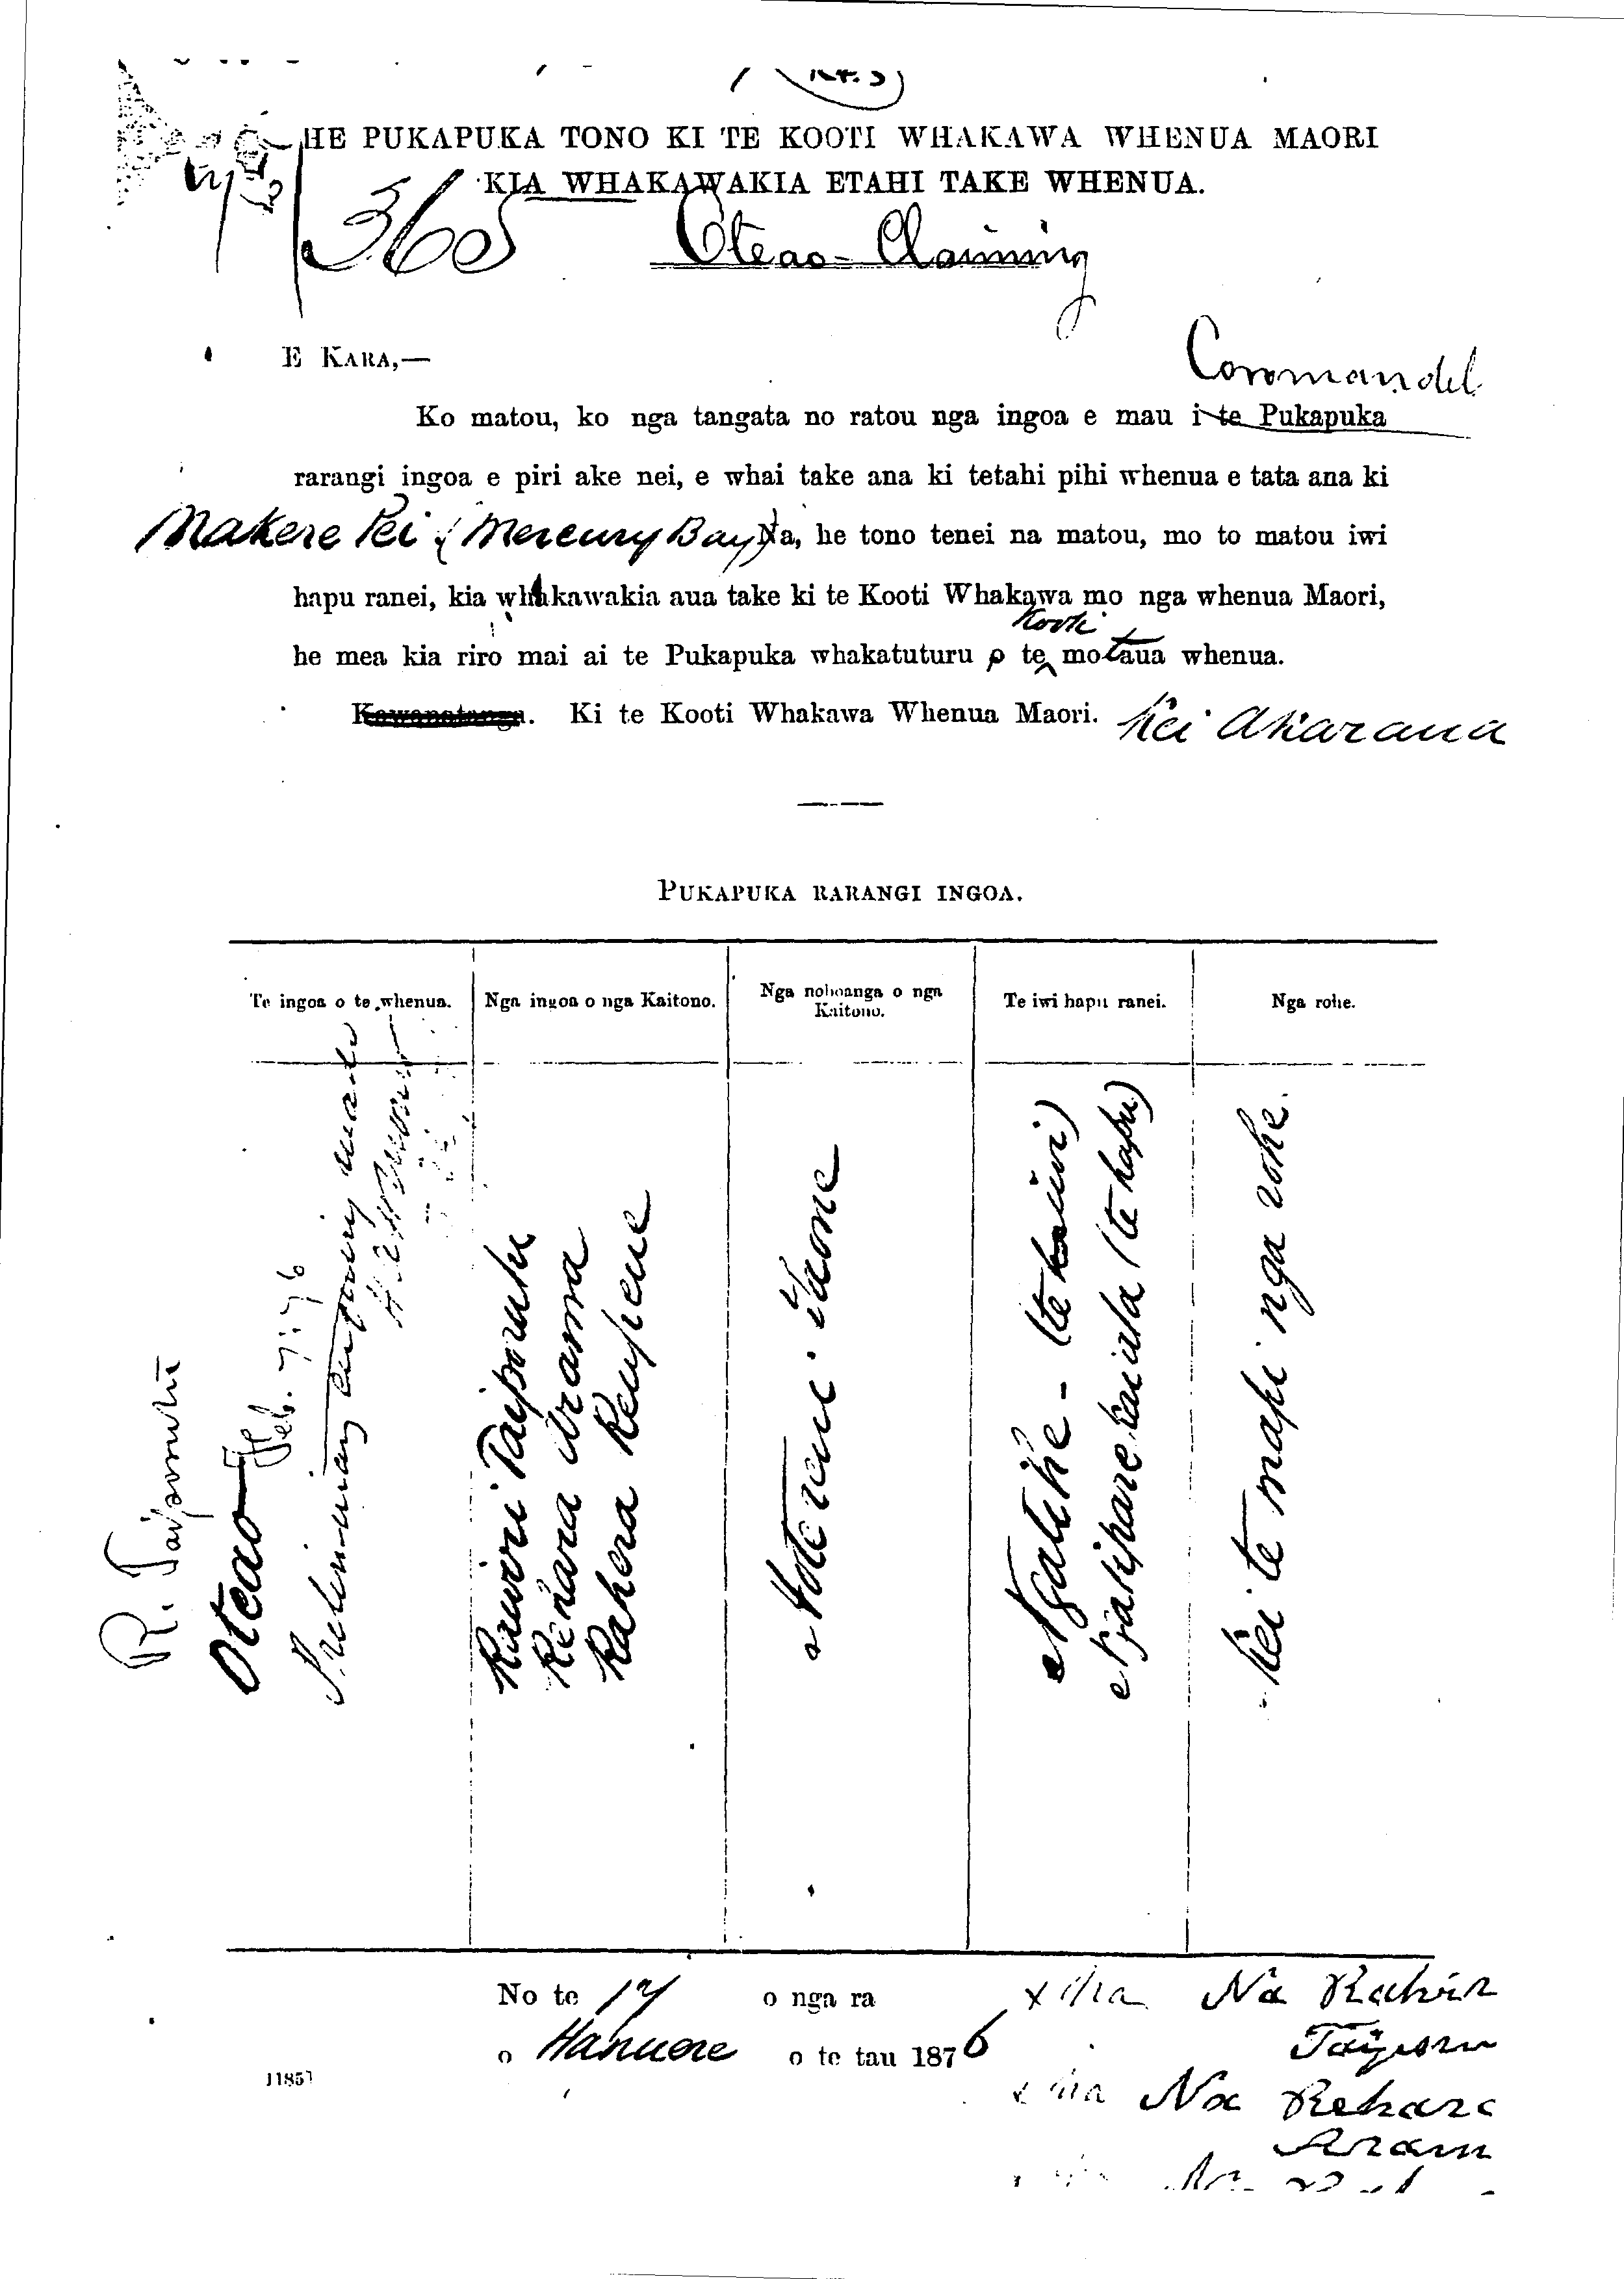 HE PUKAPUKA TONO KI TE KOOTI WHAKAWA WHENUA MAORI
KIA WHAKAWAKIA ETAHI TAKE WHENUA.
365 Oteao - Claiming
E KARA,—
Coromandel
Ko matou, ko nga tangata no ratou nga ingoa e mau i te Pukapuka
rarangi ingoa e piri ake nei, e whai take ana ki tetahi pihi whenua e tata ana ki
Makere Pei (Mercury Bay) Na, he tono tenei na matou, mo to matou iwi
hapu ranei, kia whakawakia aua take ki te Kooti Whakawa mo nga whenua Maori,
Kooti
he mea kia riro mai ai te Pukapuka whakatuturu o te mo taua whenua.
Kawanatanga. Ki te Kooti Whakawa Whenua Maori. Kei Akarana
PUKAPUKA RARANGI INGOA.
Te ingoa o te whenua.
Nga ingoa o nga Kaitono.
Nga nohoanga o nga
Kaitono.
Te iwi hapu ranei.
Nga rohe.
R. Taiporutu
Oteao
Feb. 7: 76
Preliminary enquiry made
Rawiri Taiporutu
Renara Arama
Rahera Reupene
Hotereni Taone
Ngatihe - (te iwi)
(te hapu)
Kei te mapi nga rohe.
No te 17 o nga ra
o Hanuere o te tau 1876
11857
Na
Na